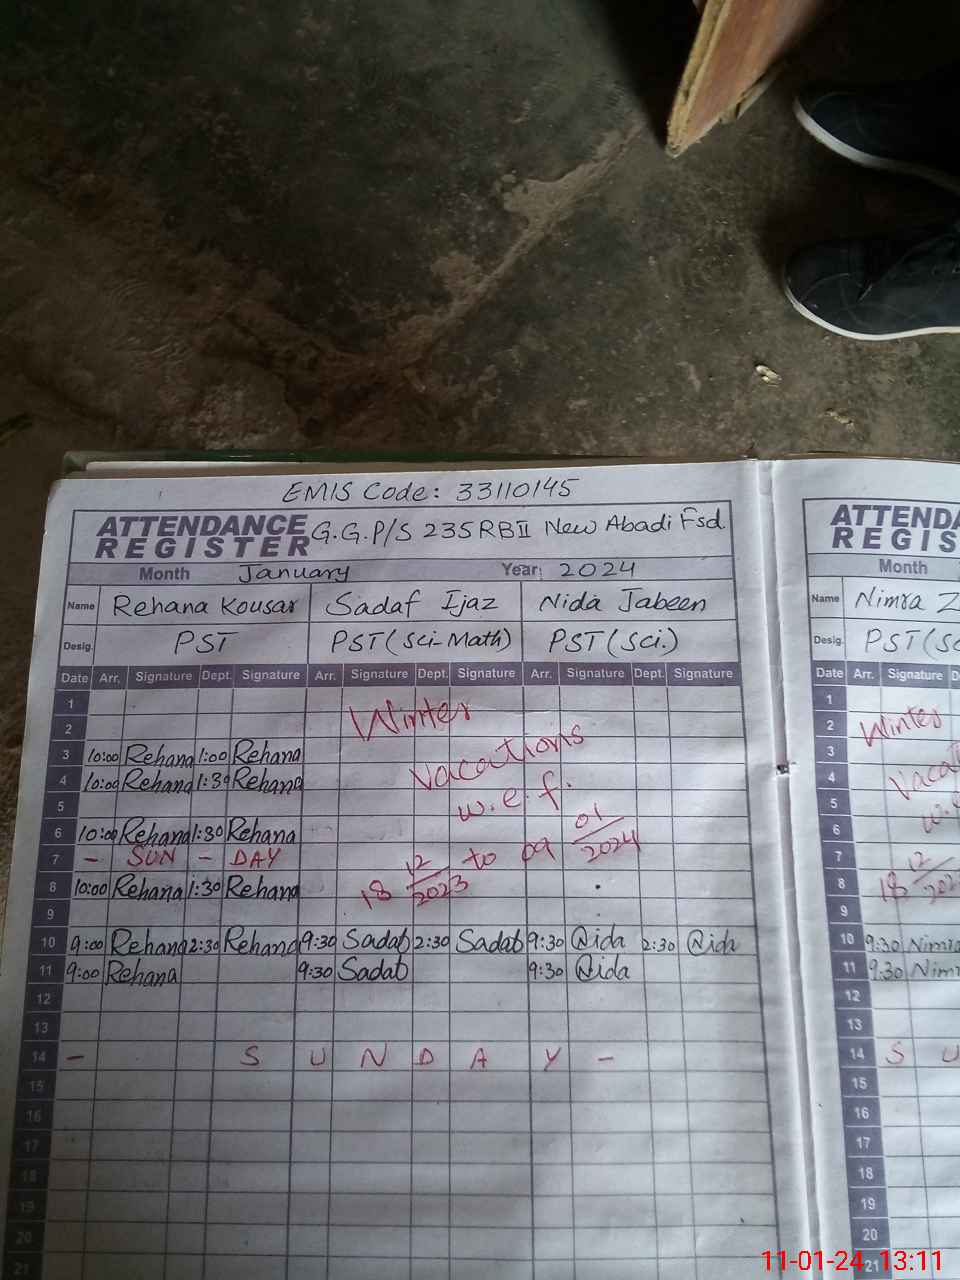 EMIS Code: 33110145
ATTENDANCE REGISTER G.G.P/S 235RBII New Abadi Fsd.
Month January Year 2024
Name Rehana Kousar Sadaf Ijaz Nida Jabeen
Desig. PST PST (Sci-Math) PST (Sci.)
Date Arr. Signature Dept. Signature Arr. Signature Dept. Signature Arr. Signature Dept. Signature
1
2 Winter
3 10:00 Rehana 1:00 Rehana Vacations
4 10:00 Rehana 1:30 Rehana
5 w.e.f.
6 10:00 Rehana 1:30 Rehana
7 - SUN - DAY
8 10:00 Rehana 1:30 Rehana 18 12/2023 to 09 01/2024
9
10 9:00 Rehana 2:30 Rehana 9:30 Sadaf 2:30 Sadaf 9:30 Nida 2:30 Nida
11 9:00 Rehana 9:30 Sadaf 9:30 Nida
12
13
14 - S U N D A Y -
15
16
17
18
19
20
21
ATTENDA
REGIS
Month
Name Nimra Z
Desig. PST (Sc
Date Arr. Signature
1
2 Winter
3
4 Vacat
5
6
7
8 18 12/202
9
10 9:30 Nimra
11 9:30 Nimr
12
13
14 S U
15
16
17
18
19
20
21
11-01-24 13:11